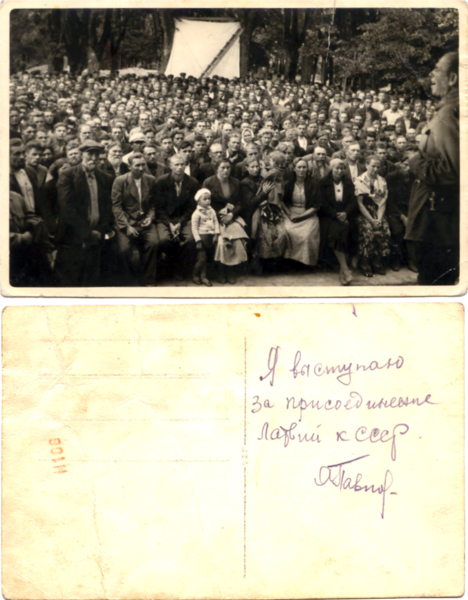 Я выступаю
за присоединение
Латвий к СССР.
И166